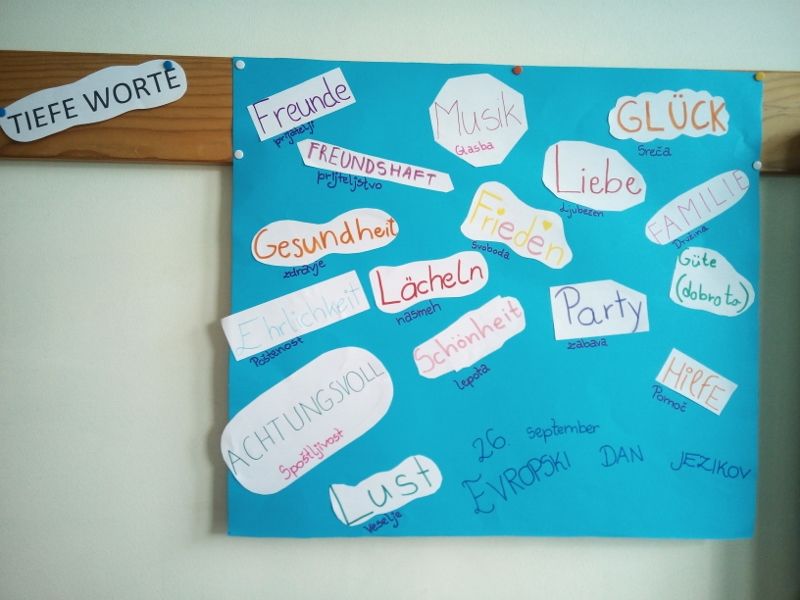 TIEFE WORTE
Freunde
prijatelji
Musik
Glasba
GLÜCK
Sreča
FREUNDSHAFT
prijteljstvo
Liebe
Ljubezen
FAMILIE
Družina
Gesundheit
zdravje
Frieden
Svoboda
Güte
(dobrota)
Lächeln
nasmeh
Ehrlichkeit
Poštenost
Schönheit
lepota
Party
zabava
HILFE
Pomoč
ACHTUNGSVOLL
Spoštljivost
Lust
veselje
26. september
EVROPSKI DAN JEZIKOV